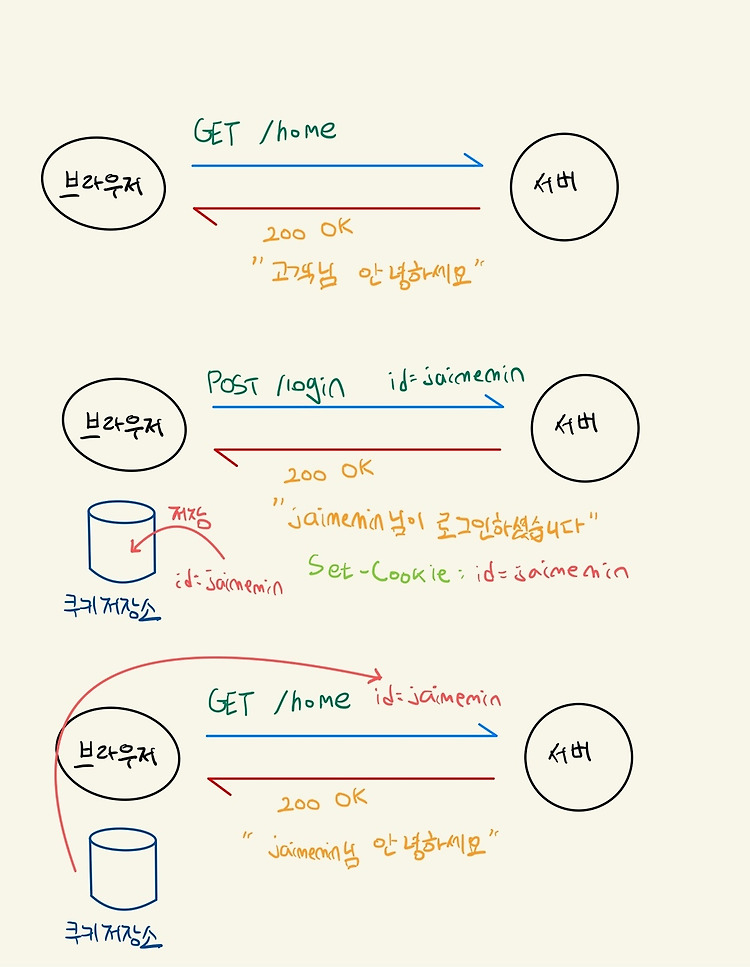 GET /home
브라우저
서버
200 OK
"고객님 안녕하세요"
POST /login id=jaimemin
브라우저
서버
200 OK
"jaimemin님이 로그인하셨습니다"
저장
id=jaimemin
Set-Cookie: id=jaimemin
쿠키 저장소
GET /home id=jaimemin
브라우저
서버
200 OK
"jaimemin님 안녕하세요"
쿠키 저장소